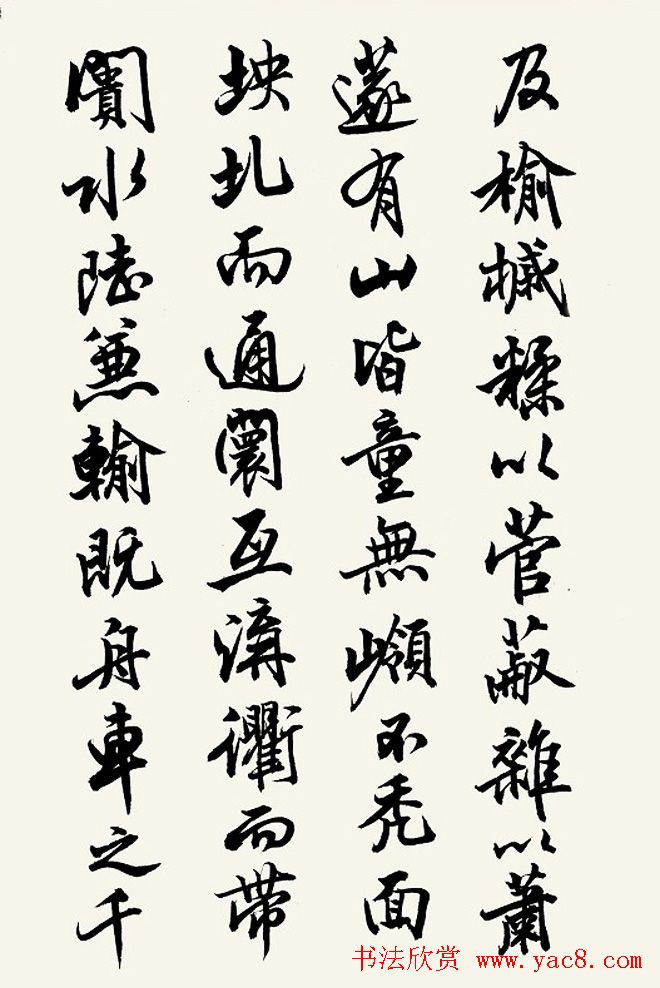 及榆槭糅以菅雜以蕭
遂有山皆童無嶺不禿面
坱圠而通闤互溝衢而帶
闠水陸兼輸既舟車之千
书法欣赏 www.yac8.com